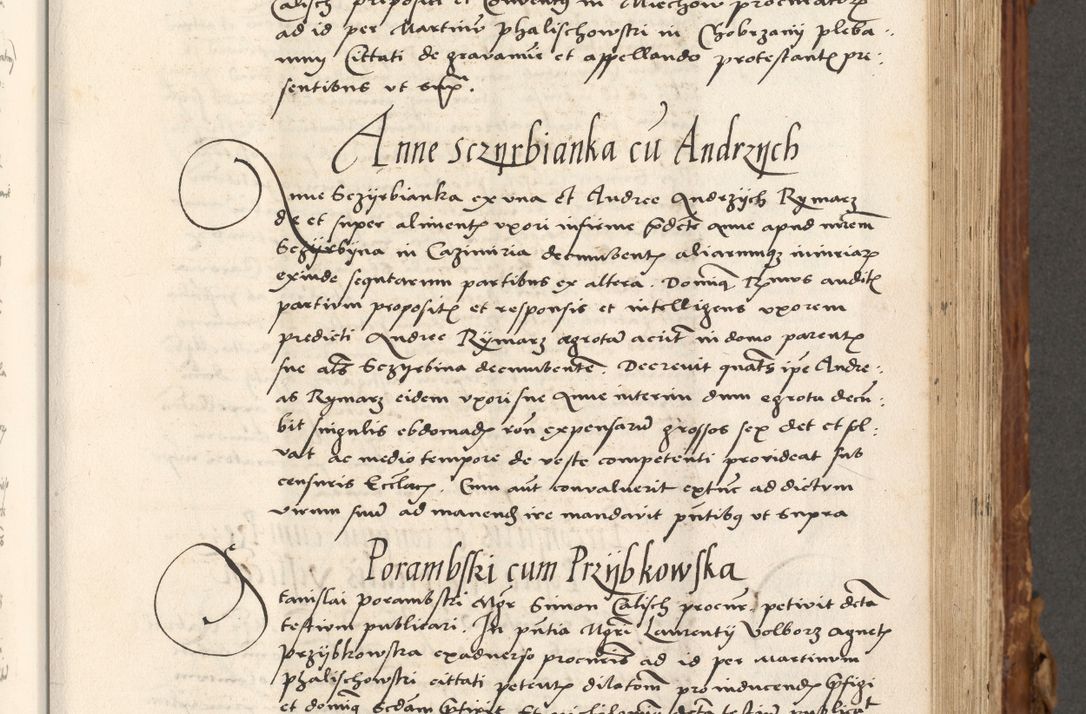 Calisch prepositi et Conventus in Miechow procuratoris
ad id per Martinum Phalischowski in Chobrzany pleba-
num Cittati de gravamine et appellando protestantis pre-
sentibus ut supra.
Anne Sczyrbianka cũ Andrzych
Anne Sczyrbianka ex una Et Andree Andrzych Rymarz
de et super alimentis uxori infirme
Sczyrbyna in Cazimiria decumbentis aliarumque iniuriarum
exinde sequtarum partibus ex altera. Dominus auditis
partium propositis et responsis et intelligens uxorem
predicti Andree Rymarz egrotam in domo parentis
sue Sczyrbina decumbentem. Decrevit quatenus ipse Andre-
as Rymarz eidem uxori sue Anne interim dum egrota decu-
bit singulis ebdomadis expensarum grossos sex det et sol-
vat ac medio tempore de veste competenti provideat sub
censuris Ecclesiasticis. Cum autem convaluerit extunc ad dictum
virum suum ad manendum ire mandavit presentibus ut supra
Porambski cum Przybkowska
Stanislai Porambski Magister Simon Calisch procurator petivit dicta
testium publicari. In presentia Magistri Laurentij Volborz Agnetis
Przybkowska exadverso procuratoris ad id per Martinum
Phalischowski cittati petentis dilationem pro inducendis
et dominus dicta testium publicat